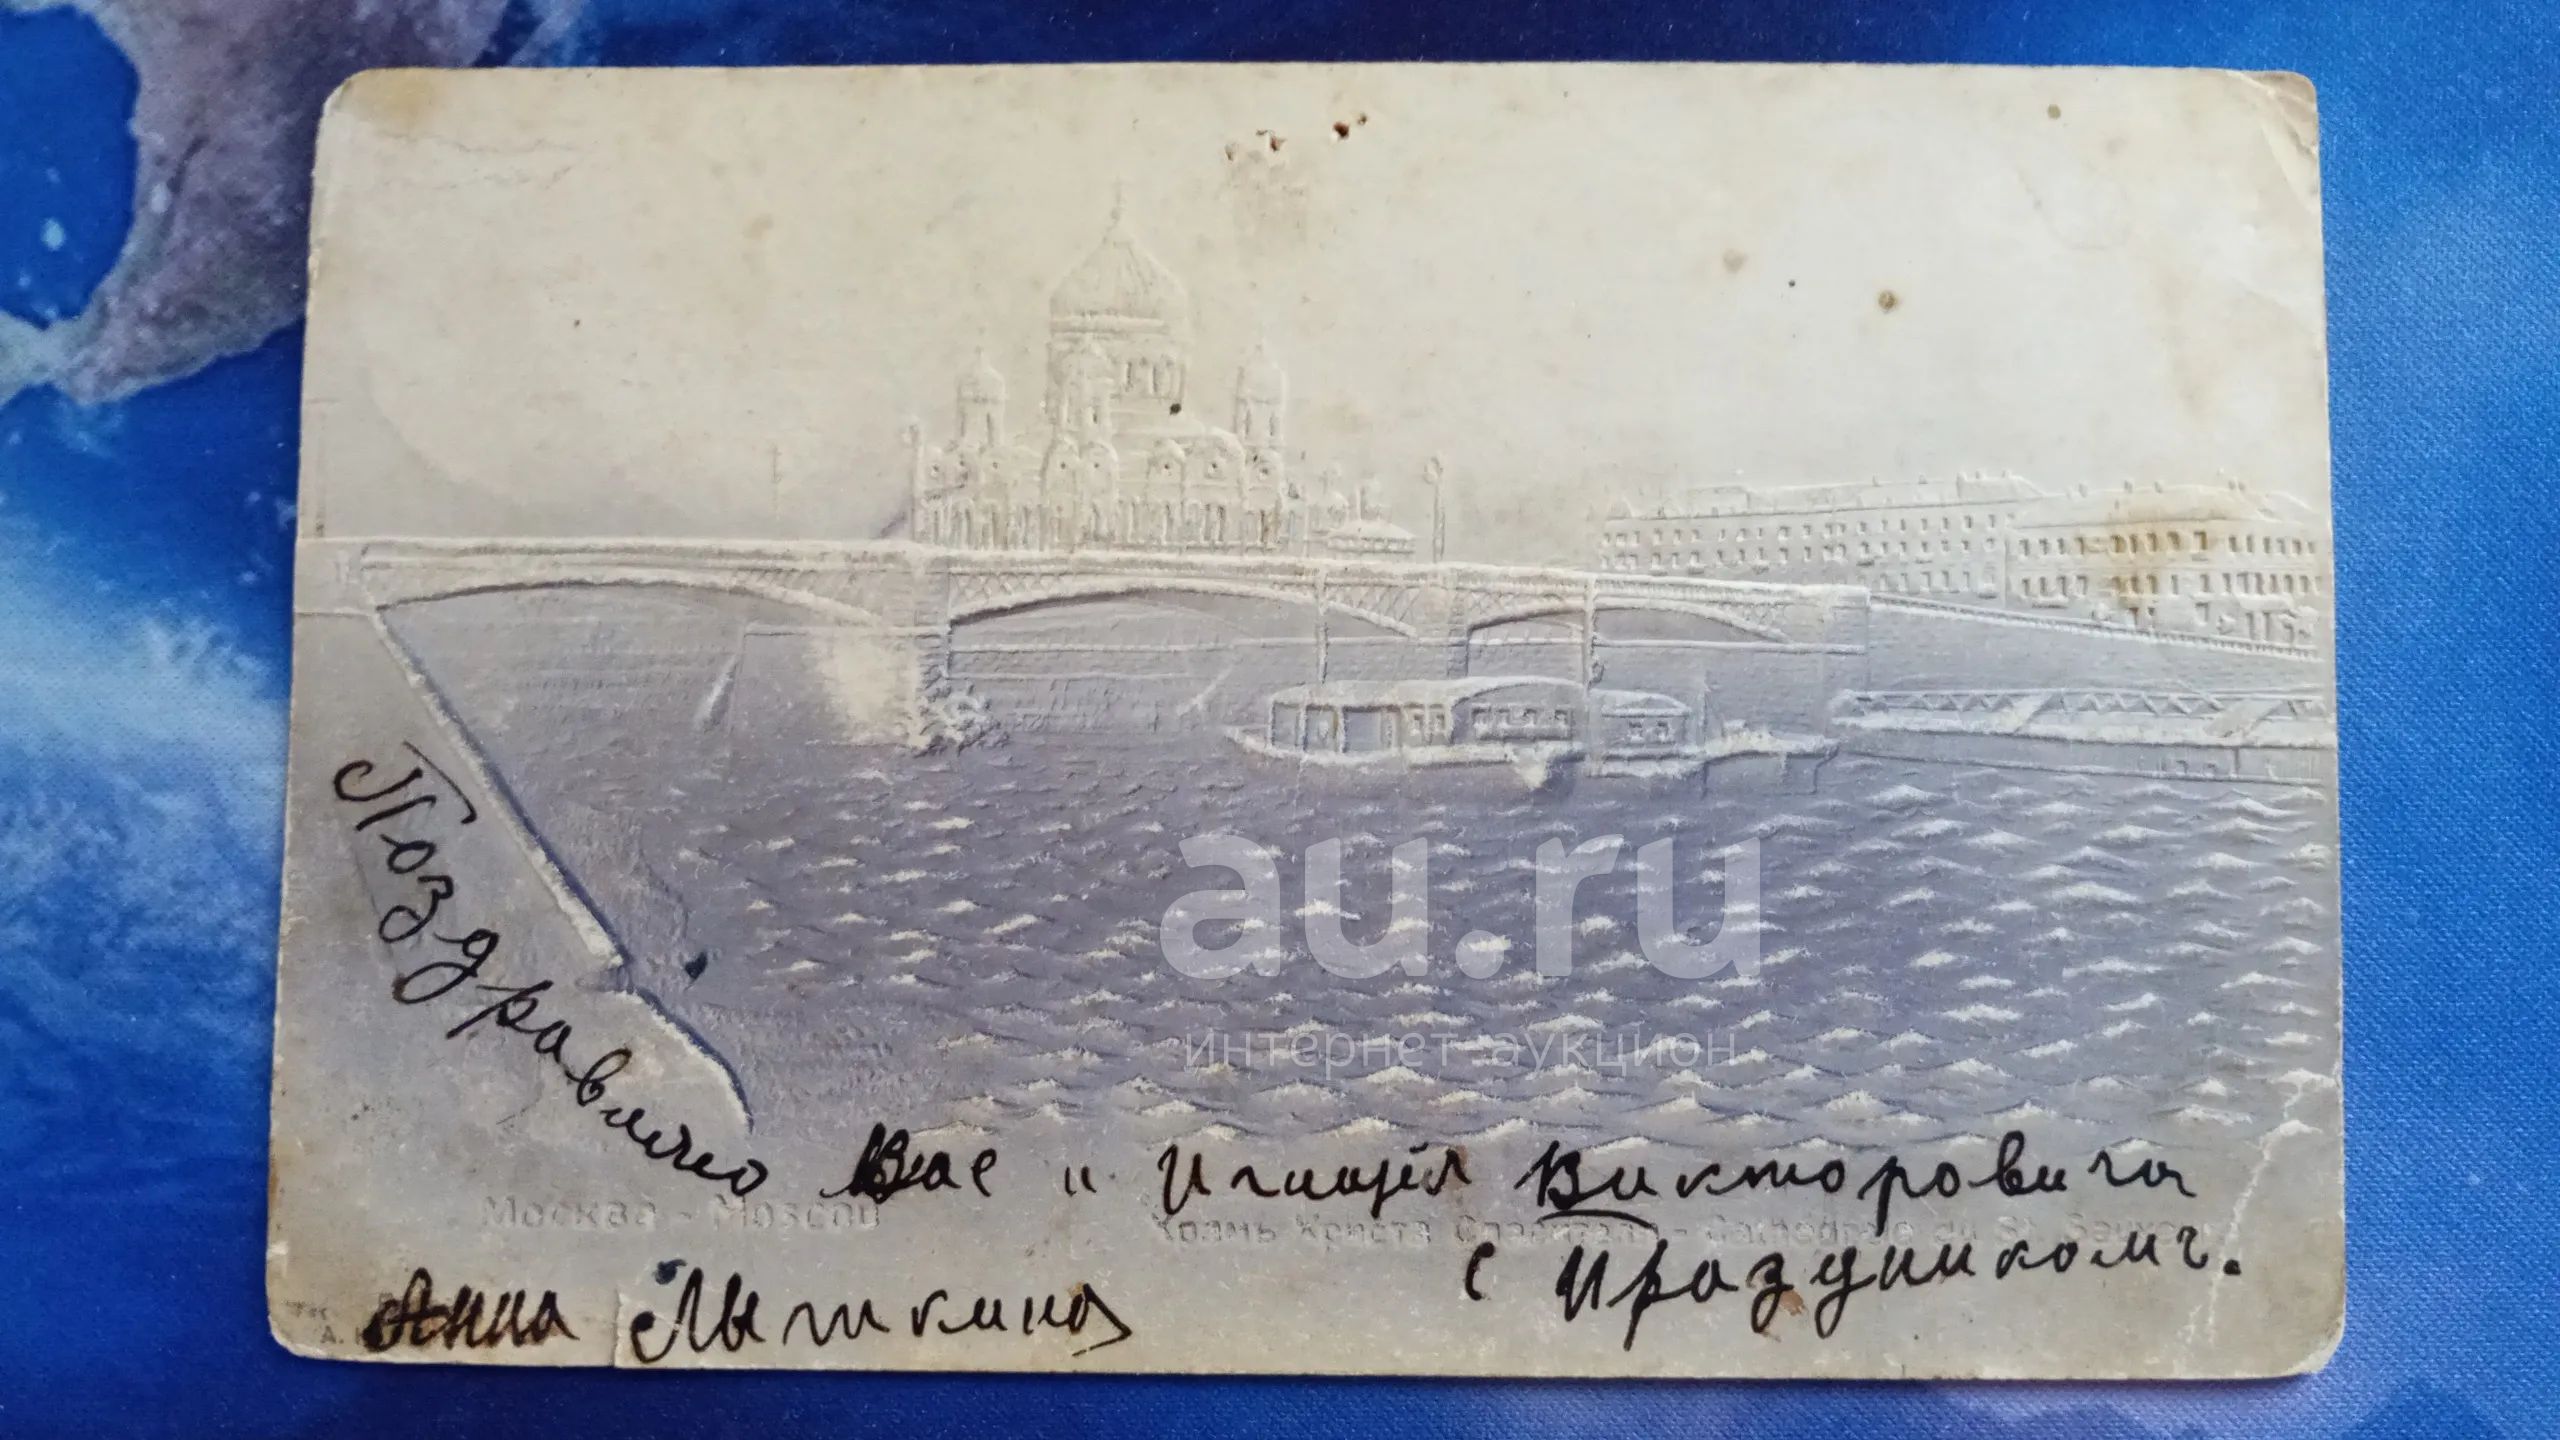 Поздравляю Вас и Игнатія Викторовича
с Праздникомъ.
Анна Мышкина
Москва - Moscou
Храмъ Христа Спасителя - Cathédrale du St. Sauveur
au.ru
интернет-аукцион